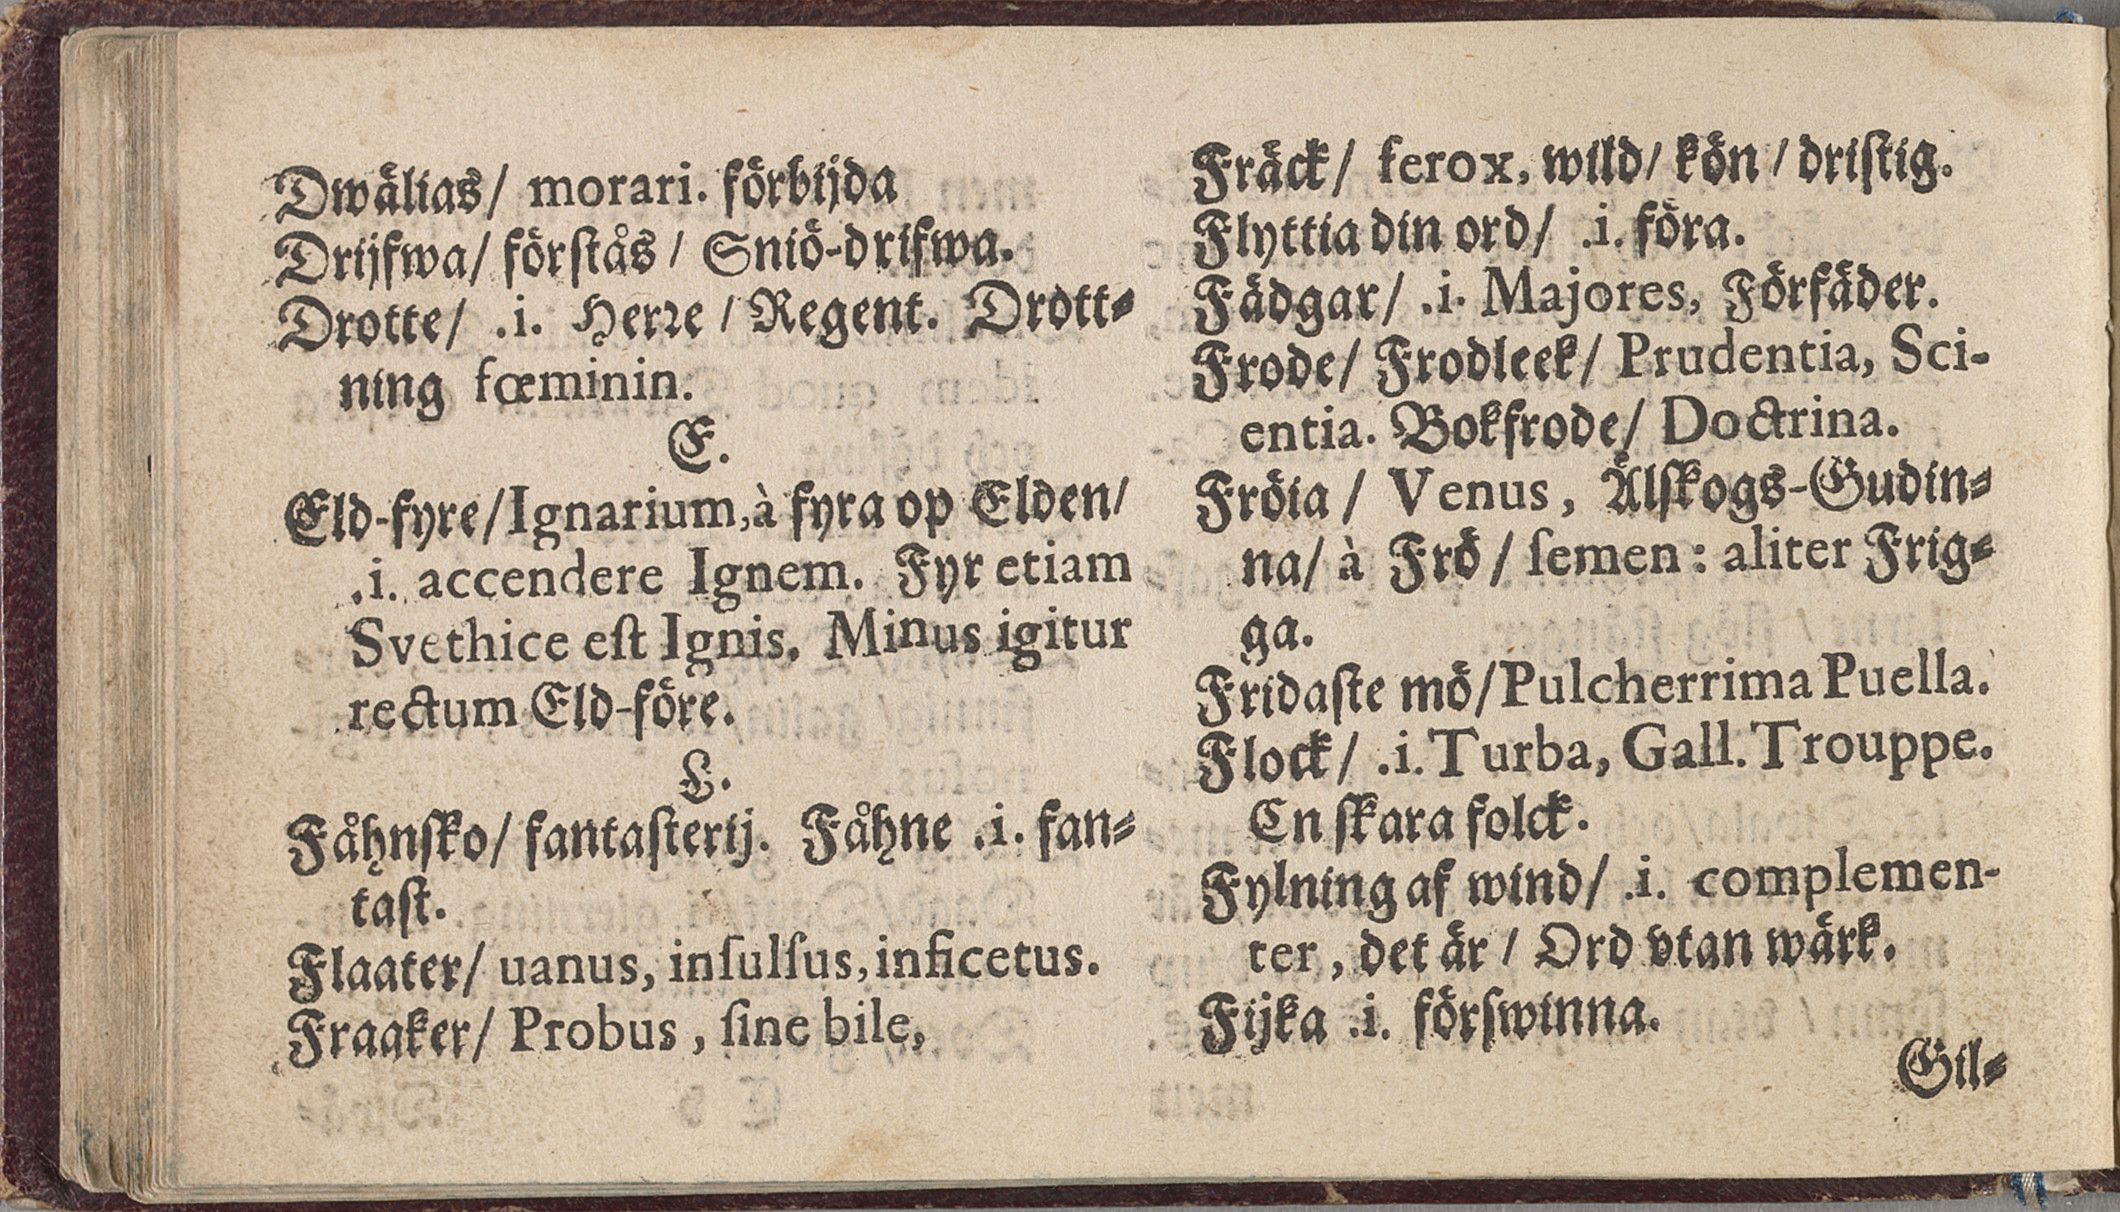 Dwälias/ morari. förbijda
Drijfwa/ förſtås/ Sniö-drifwa.
Drotte/ .i. Herꝛe/ Regent. Drott⸗
ning fœminin.
E.
Eld-fyre/ Ignarium, à fyra op Elden/
.i. accendere Ignem. Fyr etiam
Svethice eſt Ignis. Minus igitur
rectum Eld-före.
L.
Fåhnſko/ fantaſterij. Fåhne .i. fan⸗
taſt.
Flaater/ uanus, inſulſus, inficetus.
Fraaker/ Probus, ſine bile,
Fräck/ ferox, wild/ kön/ driſtig.
Flyttia din ord/ .i. föra.
Fädgar/ .i. Majores, Förfäder.
Frode/ Frodleek/ Prudentia, Sci-
entia. Bokfrode/ Doctrina.
Fröia/ Venus, Älſkogs-Gudin⸗
na/ à Frö/ ſemen: aliter Frig⸗
ga.
Fridaſte mö/ Pulcherrima Puella.
Flock/ .i. Turba, Gall. Trouppe.
En ſkara folck.
Fylning af wind/ .i. complemen-
ter, det är/ Ord vtan wärk.
Fijka .i. förſwinna.
Gil⸗